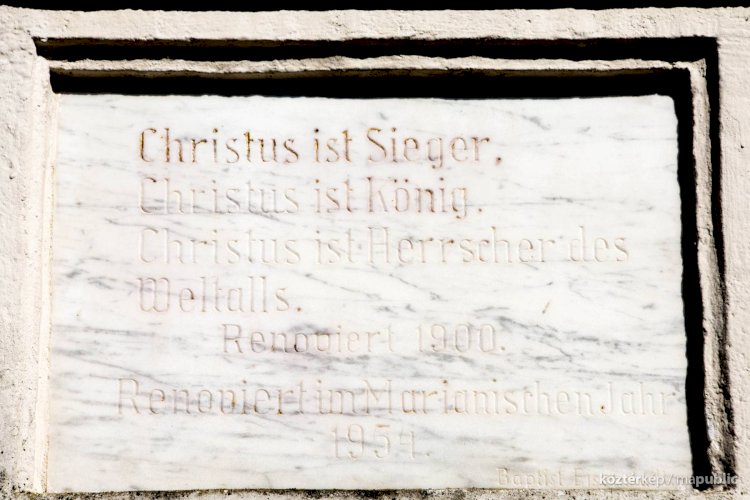 Christus ist Sieger.
Christus ist König.
Christus ist Herrscher des
Weltalls.
Renoviert 1900.
Renoviert im Marianischen Jahr
1954.
Baptist
köztérkép/mapublic